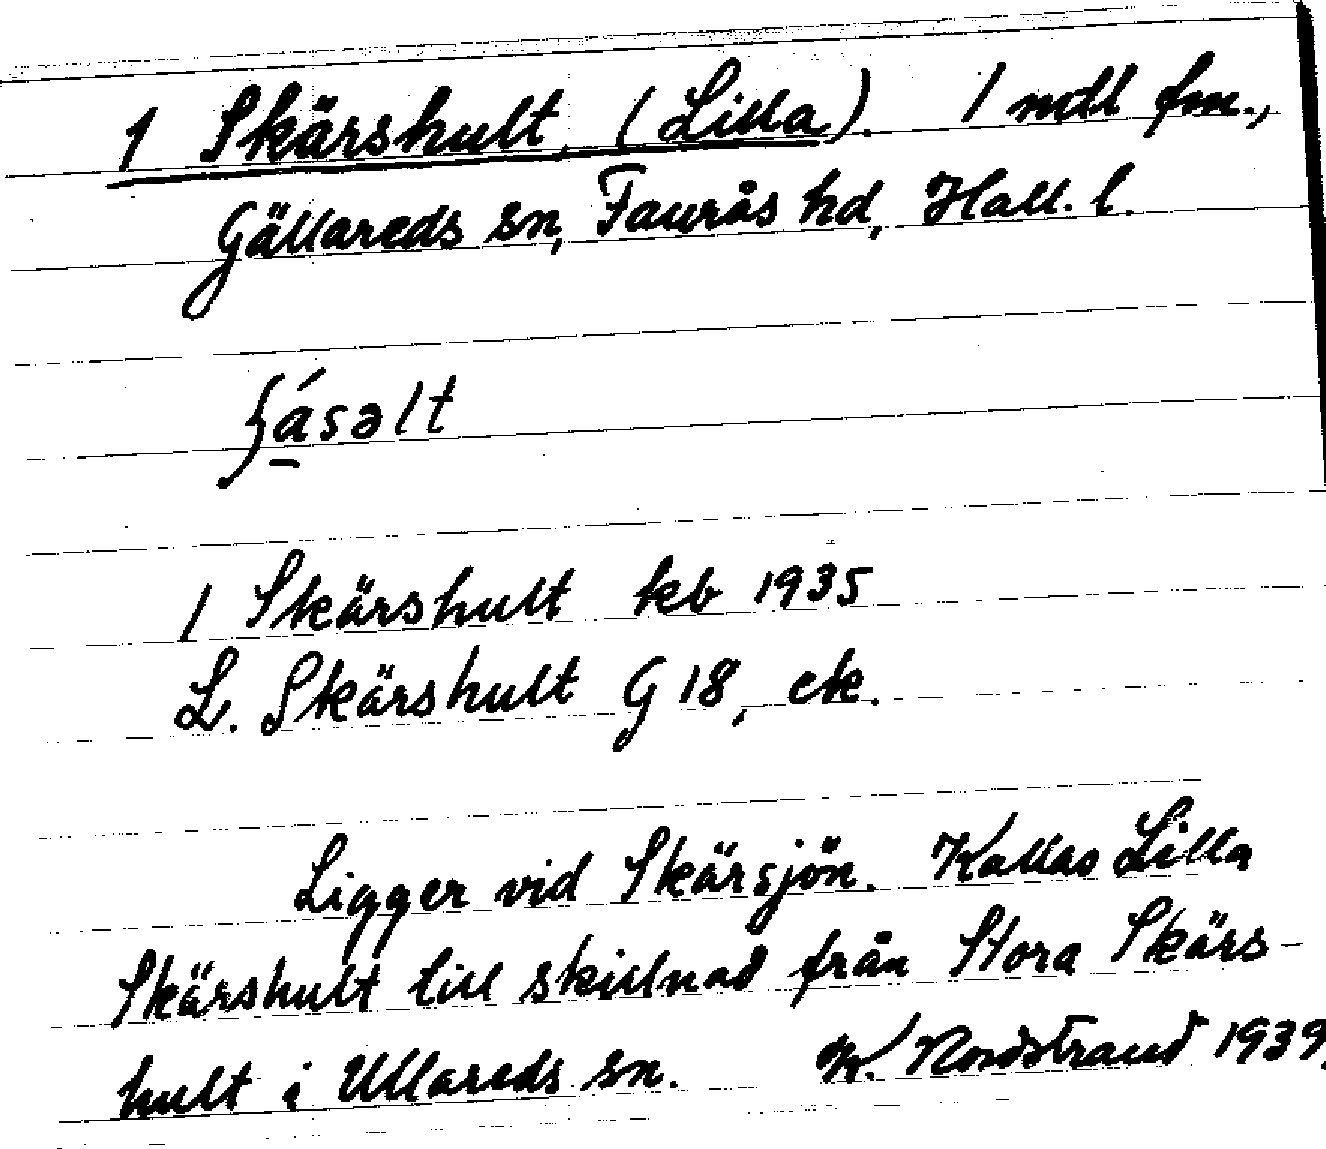 1 Skärshult, (Lilla). 1 mtl fm.,
Gällareds sn, Faurås hd, Hall. l.
ʃásəlt
1 Skärshult kb 1935
L. Skärshult G 18, ek.
Ligger vid Skärsjön. Kallas Lilla
Skärshult till skillnad från Stora Skärs-
hult i Ullareds sn. K. Nordstrand 1939.